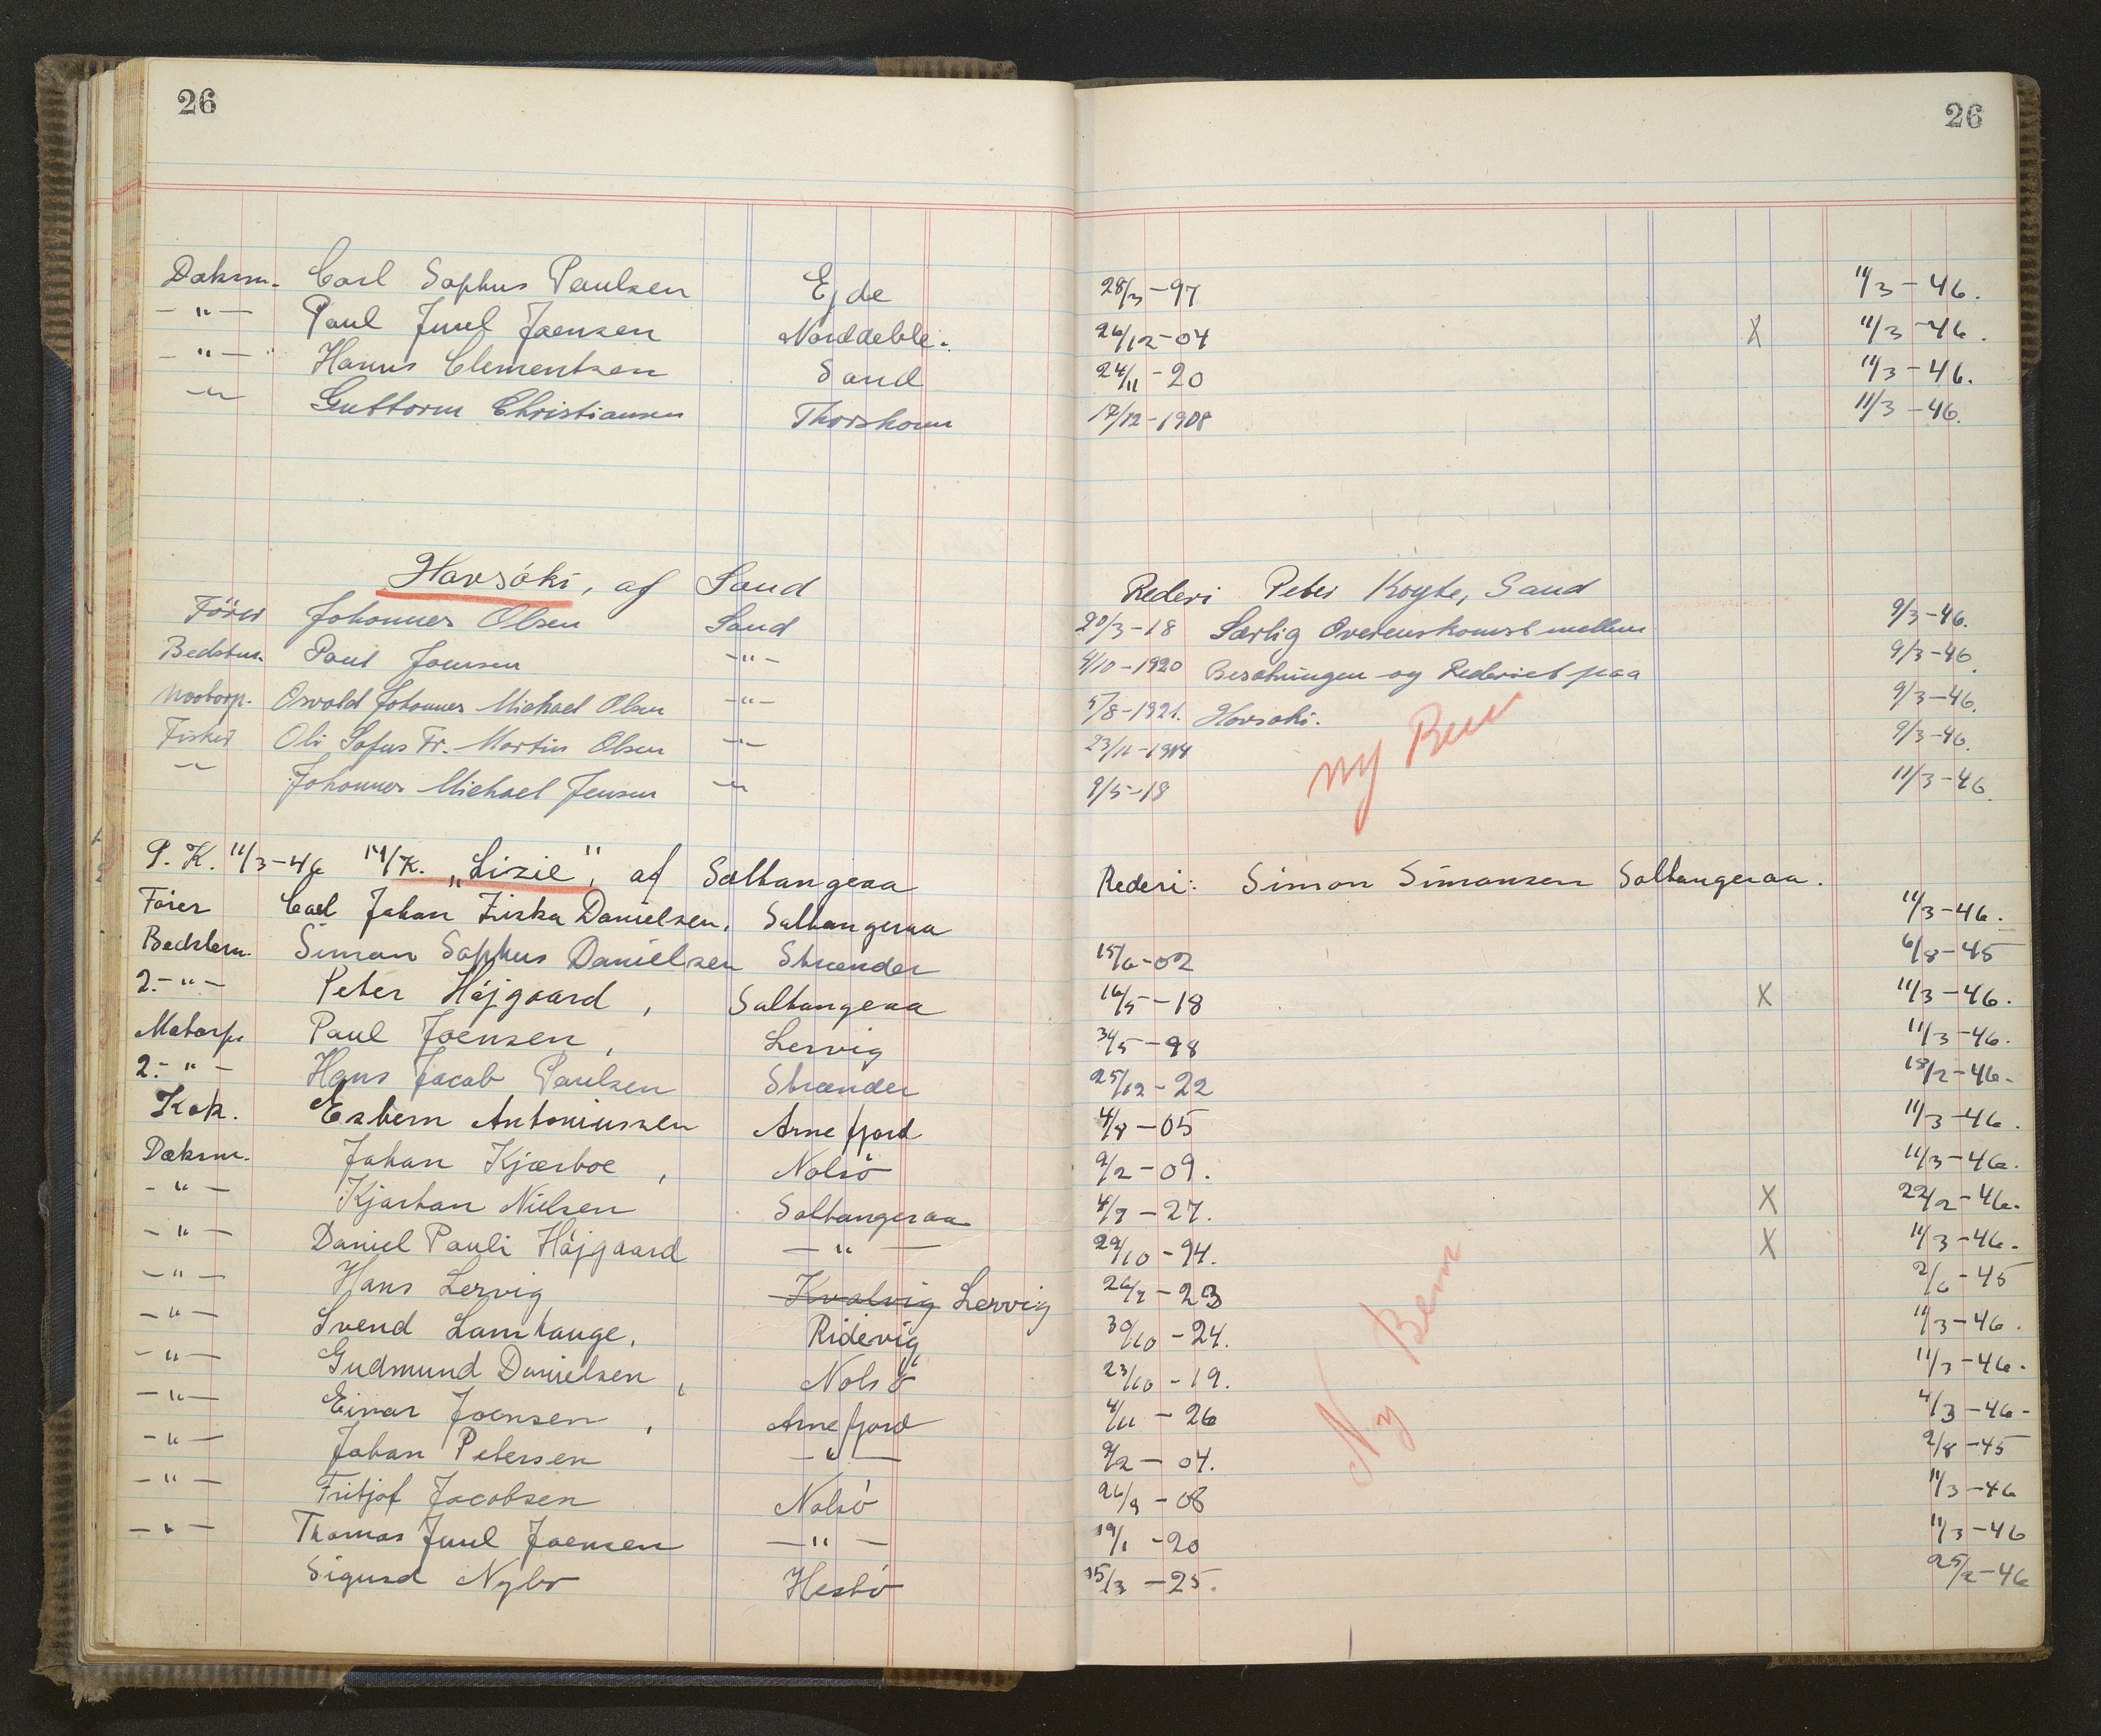 26 26
Dæksm. Carl Sophus Paulsen Ejde 28/3-97 11/3-46.
-"- Paul Juul Joensen Norddeble. 26/12-04 X 11/3-46.
-"- Hanus Clementsen Sand 24/11-20 11/3-46.
-"- Guttorm Christiansen Thorshavn 17/12-1908 11/3-46.
Havsóki, af Sand Rederi Peter Kryte, Sand
Förer Johannes Olsen Sand 20/3-18 Særlig Overenskomst mellem 9/3-46.
Bedstm. Poul Joensen -"- 4/10-1920 Besætningen og Rederiet paa 9/3-46.
Motorp. Osvald Johannes Michael Olsen -"- 5/8-1921. Havsoki. 9/3-46.
Fisker Oli Sofus Fr. Martin Olsen -"- 23/11-1914 ny Bem 9/3-46.
-"- Johannes Michael Jensen -"- 9/5-18 11/3-46.
P. K. 11/3-46 M/K. "Lizie", af Saltangeraa Rederi: Simon Simonsen Saltangeraa.
Fører Carl Johan Ziska Danielsen, Saltangeraa 11/3-46.
Bedstem. Simon Sophus Danielsen Strænder 15/6-02 6/8-45
2.-"- Peter Højgaard, Saltangeraa 16/5-18 X 11/3-46.
Motorp. Paul Joensen, Lervig 30/5-98 11/3-46.
2.-"- Hans Jacob Paulsen Strænder 25/12-22 18/2-46.
Kok. Esbern Antoniussen Arnefjord 4/8-05 11/3-46.
Dæksm. Johan Kjærboe, Nolsö 9/2-09. 11/3-46.
-"- Kjartan Nielsen Saltangeraa 4/7-27. X 22/2-46.
-"- Daniel Pauli Højgaard -"- 29/10-94. X 11/3-46.
-"- Hans Lervig Kvalvig Lervig 26/7-23 2/6-45
-"- Svend Lamhauge, Ridevig 30/10-24. 11/3-46.
-"- Gudmund Danielsen, Nolsö 23/10-19. 11/3-46.
-"- Einar Joensen, Arnefjord 4/11-26 Ny Bem 4/3-46-
-"- Johan Petersen -"- 9/2-04. 2/8-45
-"- Fritjof Jacobsen Nolsö 26/9-08 11/3-46
-"- Thomas Juul Joensen -"- 19/1-20 11/3-46
Sigurd Nybo Hestö 15/3-25. 25/2-46